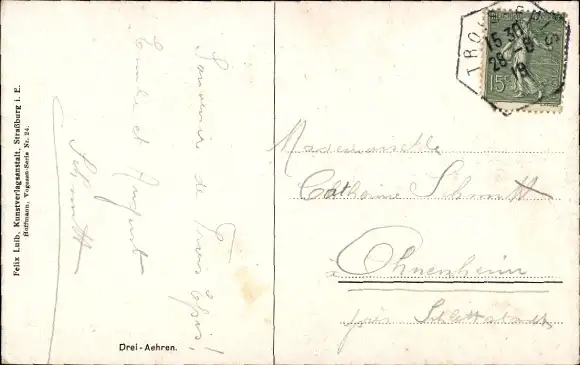 Felix Luib, Kunstverlagsanstalt, Straßburg i. E.
Hoffmann, Vogesen-Serie Nr. 24.
Souvenire de Trois Épis!
Emile et August
Schmitt
Drei-Aehren.
15 30
28 - 8
15c
Mademoiselle
Catherine Schmitt
à Ohnenheim
près Schlettstadt